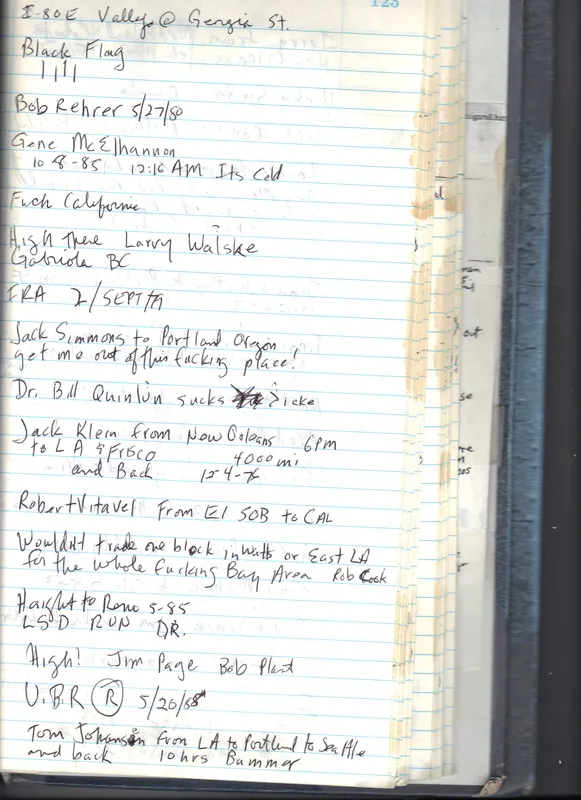 123
I-80E Valley @ Georgia St.
Black Flag
Bob Rehrer 5/27/80
Gene McElhannon
10-8-85 12:16 AM Its Cold
Fuck California
High There Larry Walske
Gabriola BC
IRA 2/SEPT/79
Jack Simmons to Portland Oregon
get me out of this fucking place!
Dr. Bill Quinlun sucks
Jack Klein from New Orleans 6pm
to LA & FrISCO 4000 mi
and Back 12-4-76
Robert Vitavel From El SOB to CAL
Wouldnt trade one block in Watts or East LA
for the whole fucking Bay Area Rob Cook
Haight to Reno 5-85
LSD RUN DR.
High! Jim Page Bob Plant
U.B.R (R) 5/20/88
Tom Johanson from LA to Portland to Seattle
and back 10 hrs Bummer
d
out
se